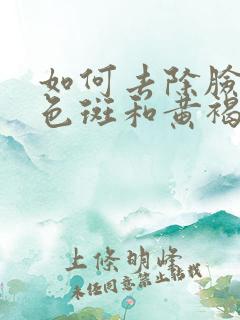 如何去除臉
色斑和黃褐
上條明峰
未经同意禁止转载